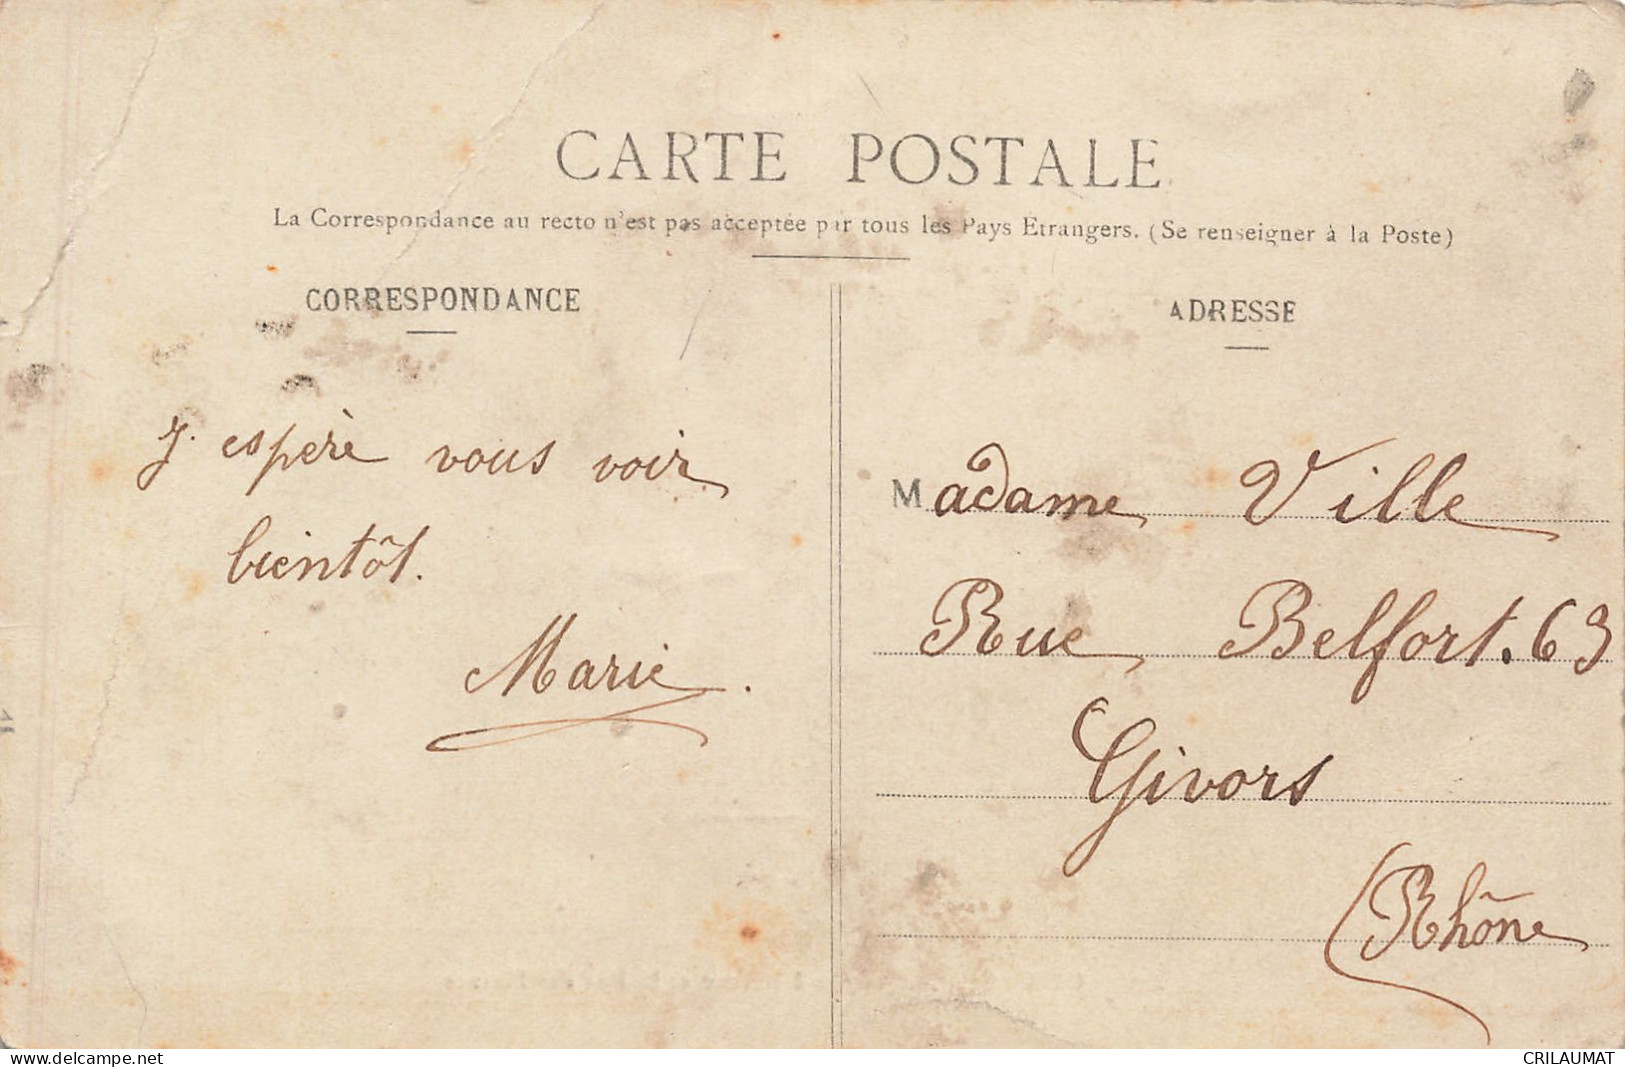 CARTE POSTALE
La Correspondance au recto n'est pas acceptée par tous les Pays Etrangers. (Se renseigner à la Poste)
CORRESPONDANCE
J. espère vous voir
bientôt.
Marie.
ADRESSE
Madame Ville
Rue Belfort. 63
Givors
(Rhône
www.delcampe.net
CRILAUMAT